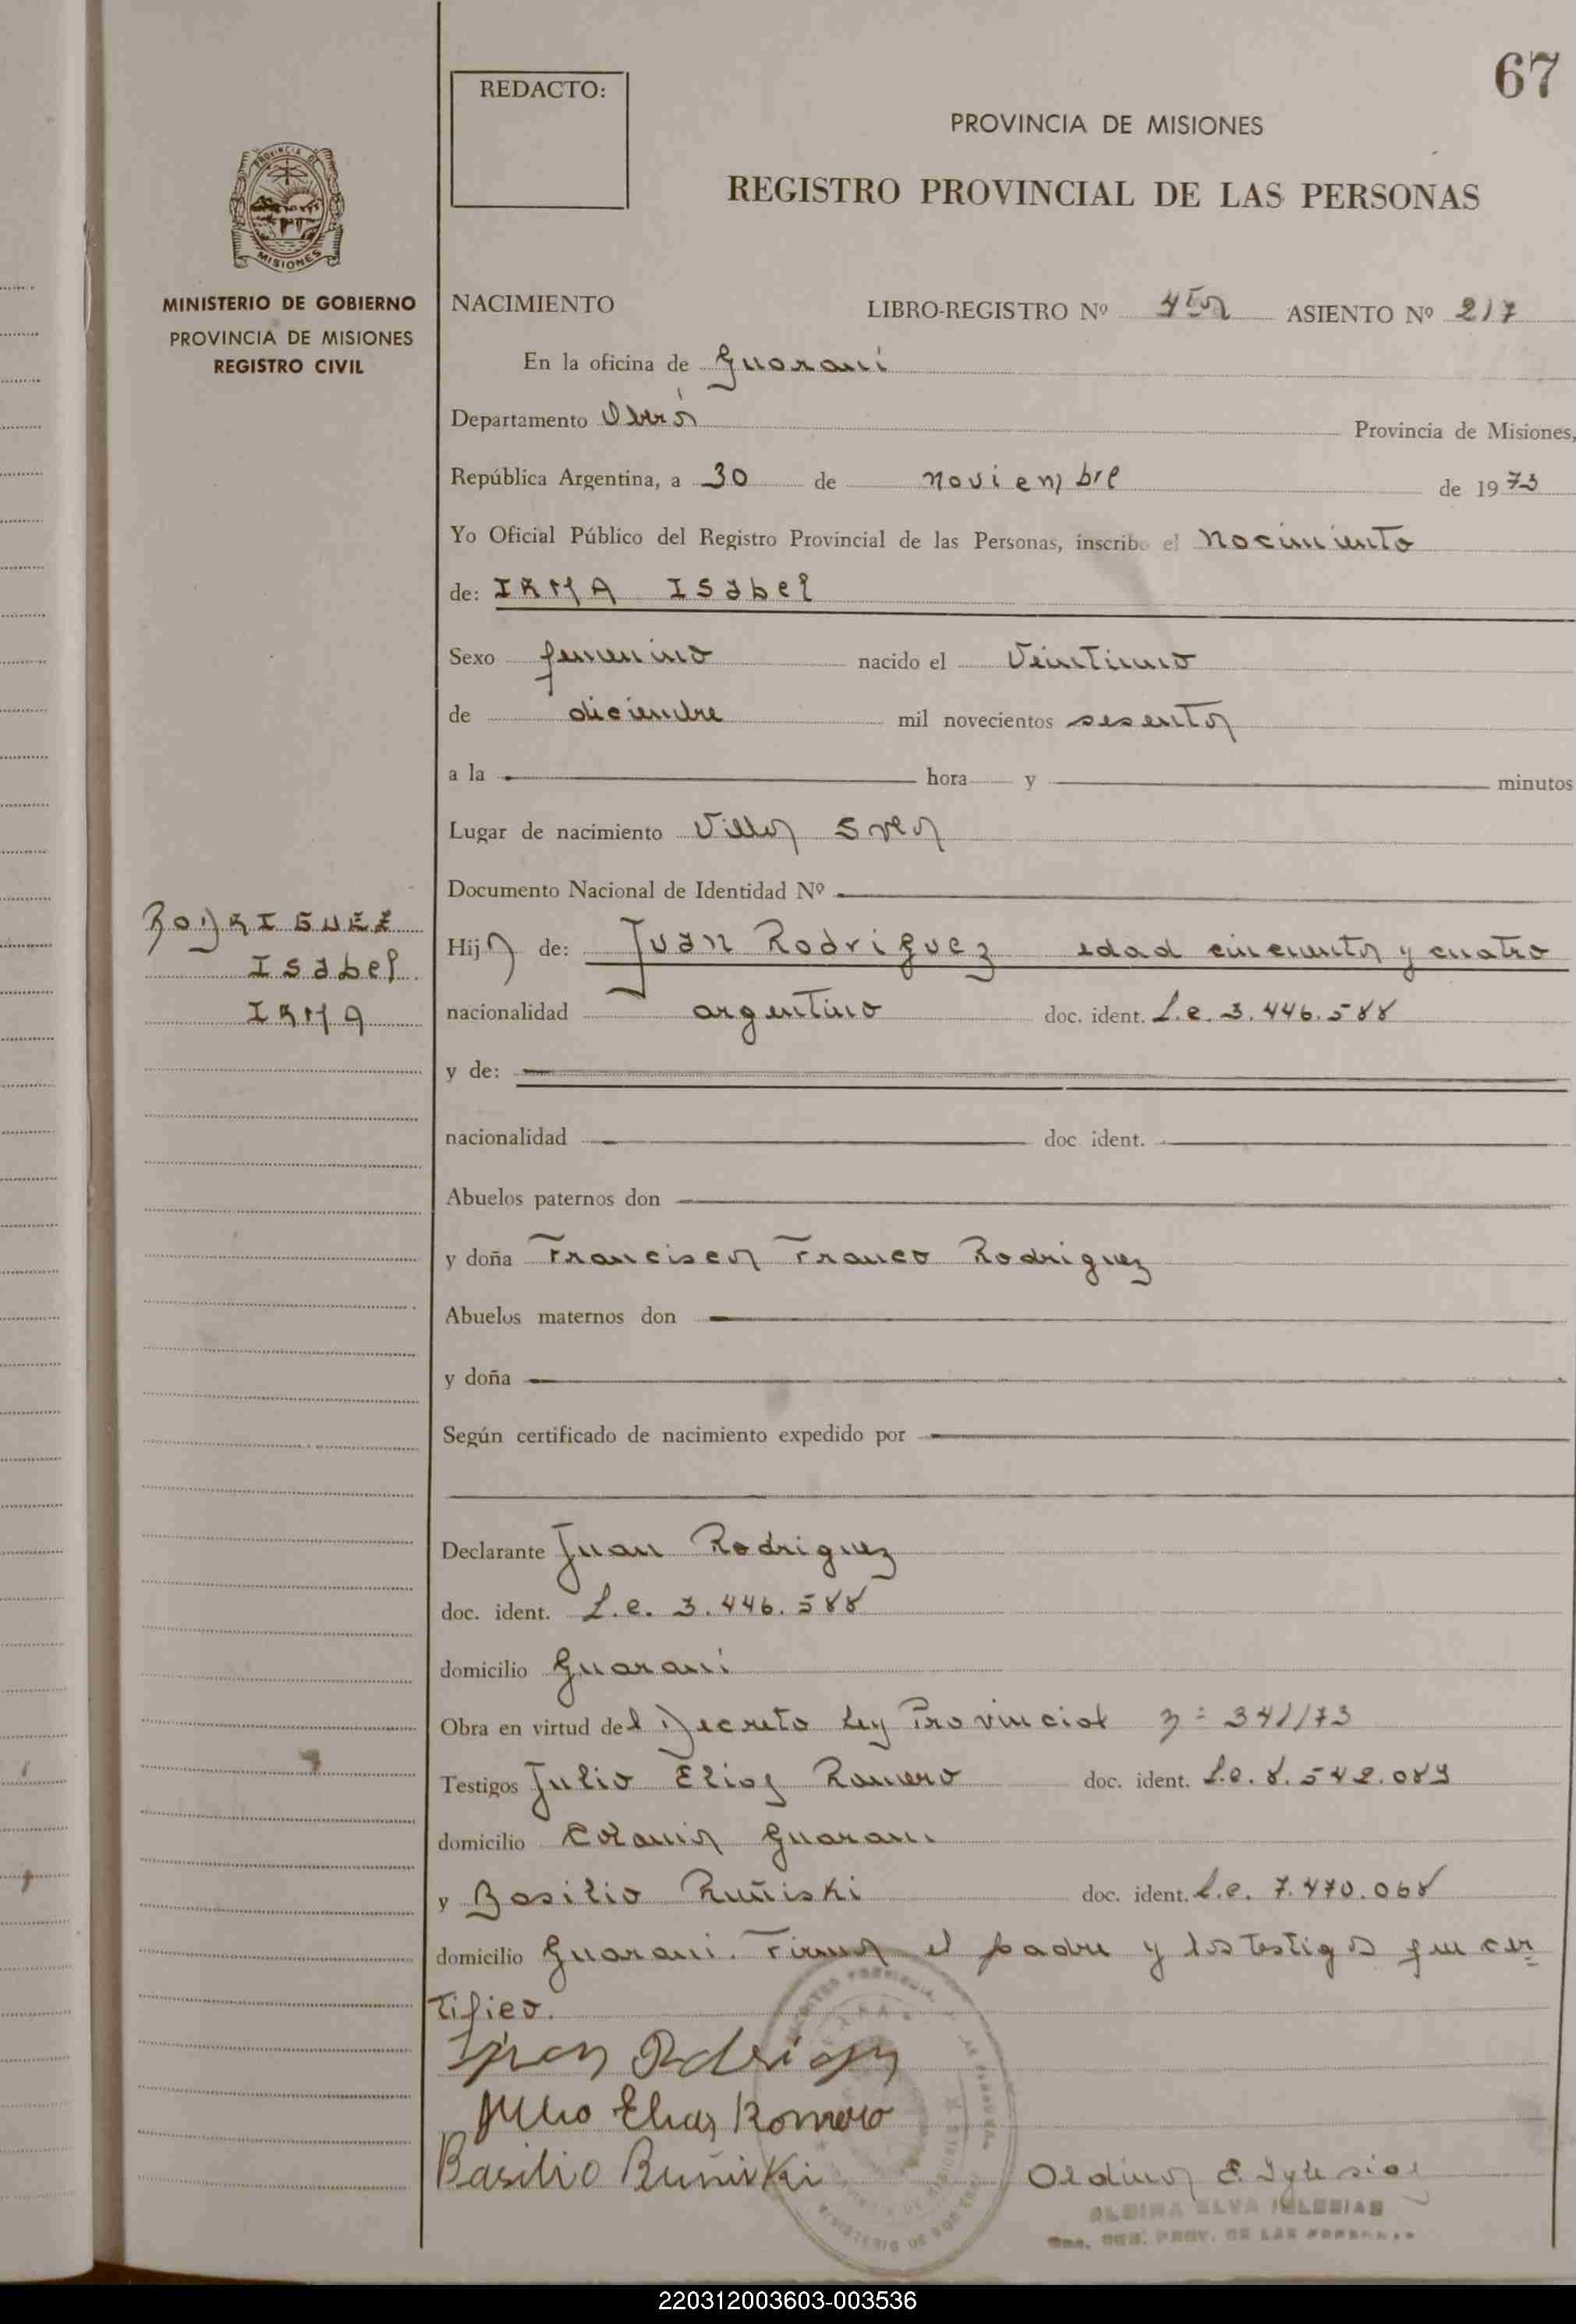 67
REDACTO:
PROVINCIA DE MISIONES
REGISTRO PROVINCIAL DE LAS PERSONAS
PROVINCIA DE
MISIONES
MINISTERIO DE GOBIERNO
PROVINCIA DE MISIONES
REGISTRO CIVIL
NACIMIENTO LIBRO-REGISTRO Nº ASIENTO Nº 217
En la oficina de Guarani
Departamento Oberá Provincia de Misiones,
República Argentina, a 30 de noviembre de 1973
Yo Oficial Público del Registro Provincial de las Personas, inscribo el Nacimiento
de: IRMA ISabel
Sexo femenino nacido el Veintiuno
de diciembre mil novecientos sesenta
a la hora y minutos
Lugar de nacimiento Villa Svea
Documento Nacional de Identidad Nº
RODRIGUEZ
ISabel
IRMA
Hija de: Juan Rodriguez edad cincuenta y cuatro
nacionalidad argentino doc. ident. L.e. 3.446.588
y de:
nacionalidad doc ident.
Abuelos paternos don
y doña Francisca Franco Rodriguez
Abuelos maternos don
y doña
Según certificado de nacimiento expedido por
Declarante Juan Rodriguez
doc. ident. L.e. 3.446.588
domicilio Guarani
Obra en virtud del Decreto Ley Provincial nº 341/73
Testigos Julio Elias Romero doc. ident. L.e. 8.542.089
domicilio Colonia Guarani
y Basilio Ruñiski doc. ident. L.e. 7.470.068
domicilio Guarani. Firma el padre y los testigos que cer
tifico.
Juan Rodriguez
Julio Elias Romero
Basilio Ruñiski
E. Iglesias
ALBINA ELVA IGLESIAS
REG. PROV. DE LAS PERSONAS
220312003603-003536